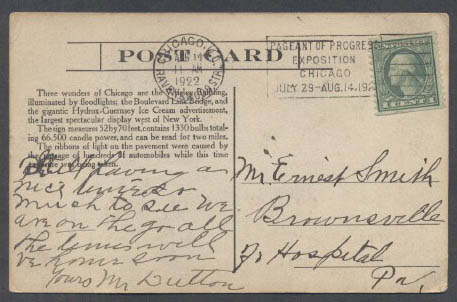 POST CARD
CHICAGO, ILL.
11 AM
1922
PAGEANT OF PROGRESS
EXPOSITION
CHICAGO
JULY 29-AUG.14,192
Three wonders of Chicago are the Wrigley Building,
illuminated by floodlights; the Boulevard Link Bridge, and
the gigantic Hydrox-Guernsey Ice Cream advertisement,
the largest spectacular display west of New York.
The sign measures 52 by 70 feet, contains 1330 bulbs total-
ing 66,500 candle power, and can be read for two miles.
The ribbons of light on the pavement were caused by
the passage of hundreds of automobiles while this time
exposure was being taken.
Still having a
nice time so
much to see we
are on the go all
the time will
be home soon
Yours Mr Dutton
Mr. Ernest Smith
Brownsville
Hospital
Pa.